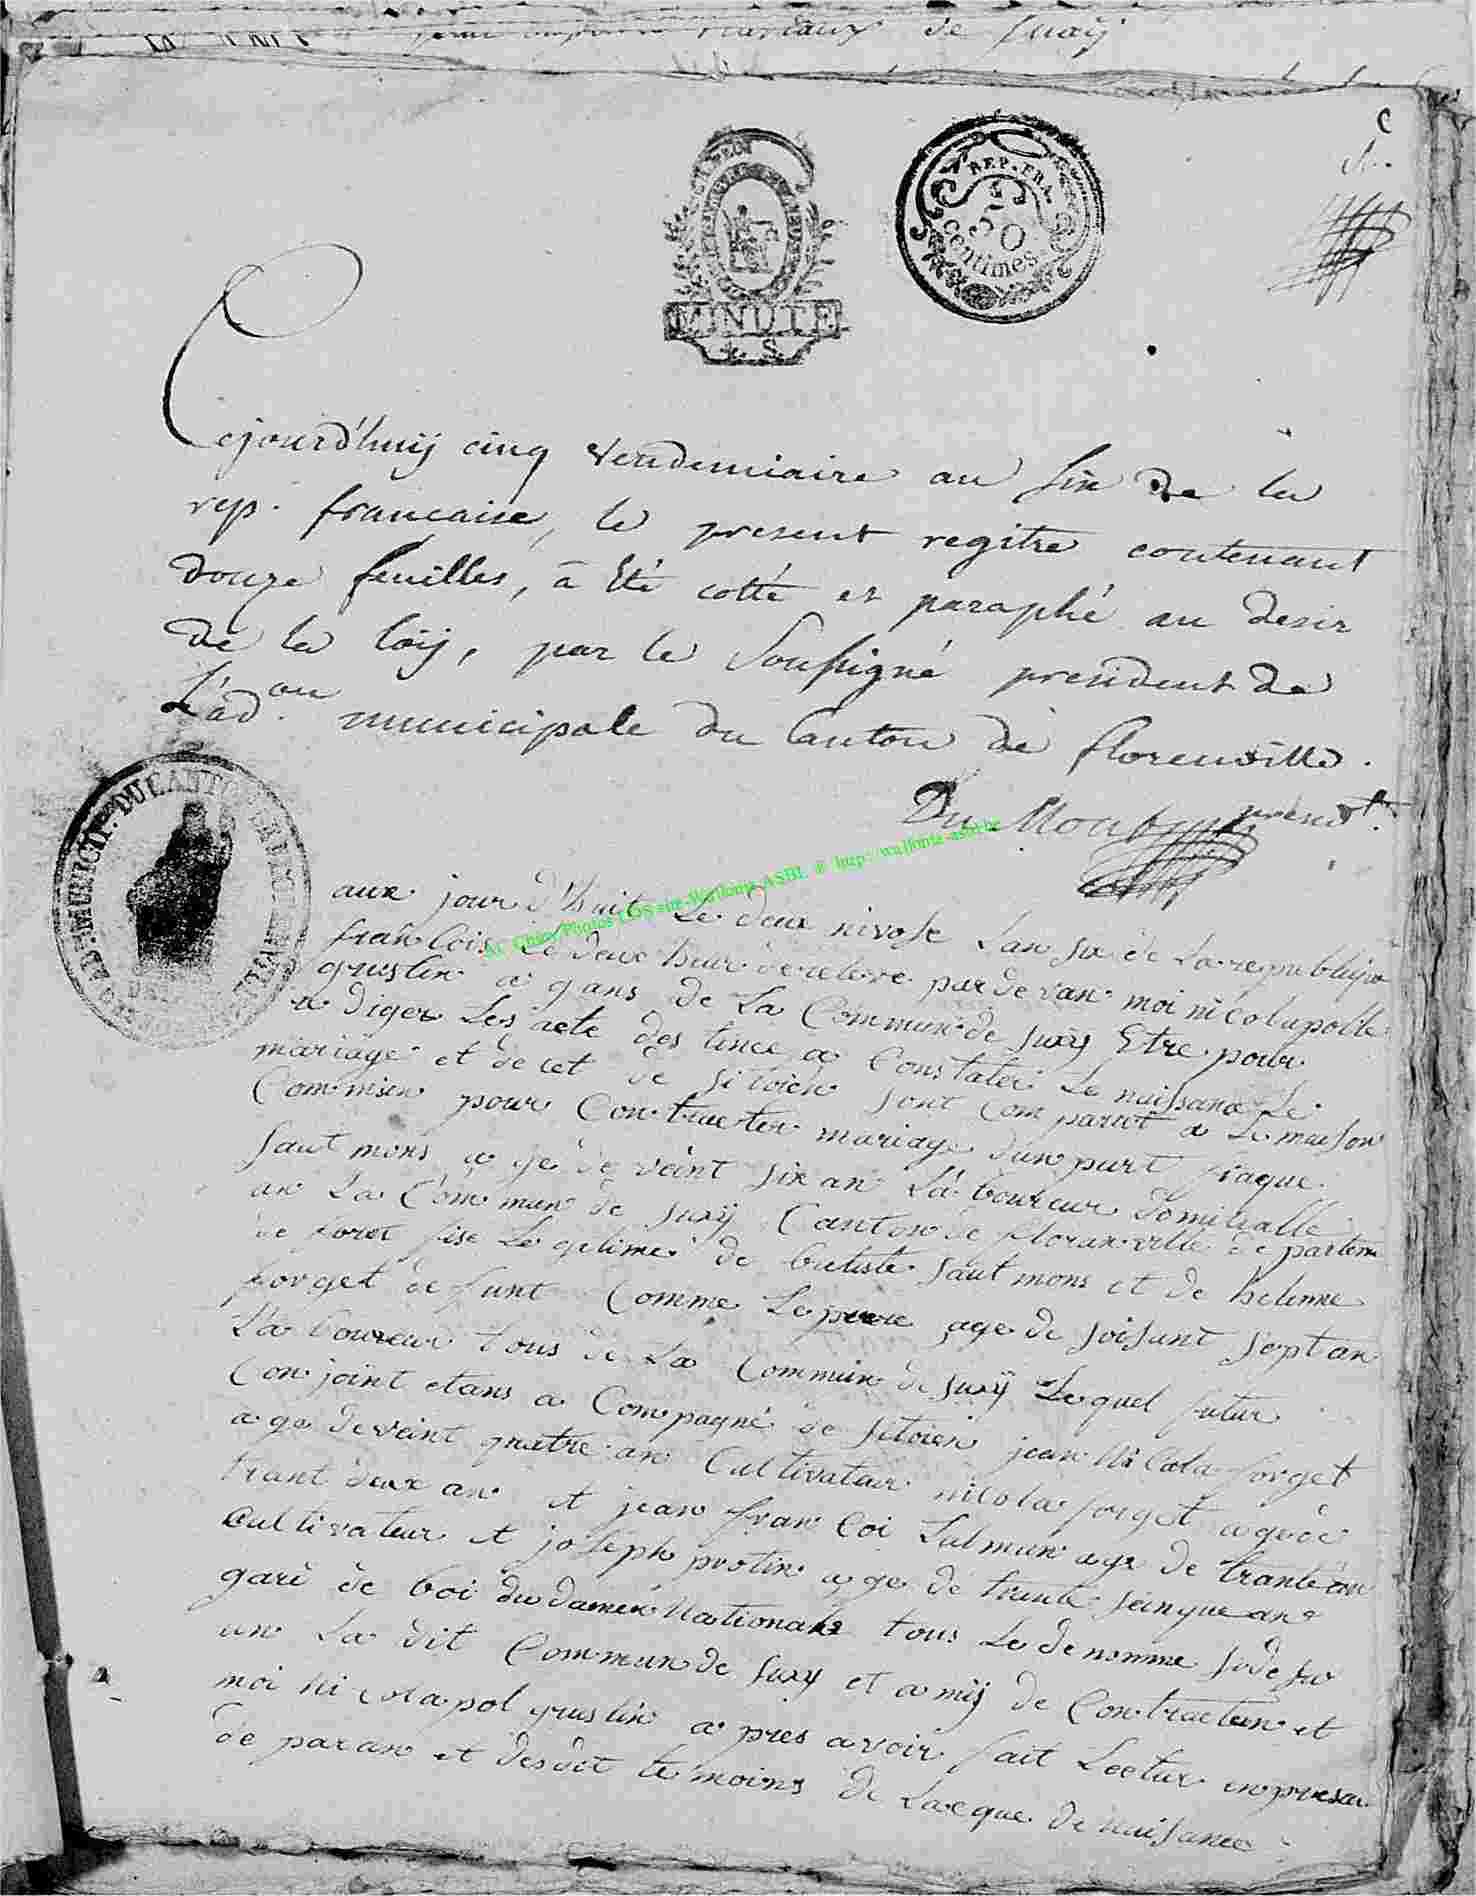 mariaux de Suxÿ
REP. FRA.
50
centimes
MINUTE
Cejourd'huij cinq vendemiaire an six de la
rep. francaise, le present regitre contenant
douze feuilles, â êté cotté et paraphé au desir
de la loij, par le soussigné president de
L'ad.on municipale du Canton de florenville.
Du Mont présid.t
AD. MUNICIP. DU CANTON
aux jour d'huit Le deux nivose Lan six de La republique
francois Le deux heur de releve par de van moi nicolapolle
gruslin a gans de La Commun de suxÿ Etre pour
re diger Les acte des tinee a Constater Le naissance Le
mariage et de cet de sitoien sont com paroit a Le maison
Commun pour Contracter mariage d'un part jaque
saut mons a gé de veint six an La boureur domicalle
an La Commun de suxÿ Canton de floranville departem
de foret fise Le gelime de batiste saut mons et de helenne
forget de funt Comme Le peere age de soisant sept an
La boureur tous de La Commun de suxÿ Lequel futur
Conjoint etans a Compagné de sitoien jean Nicola forget
a ge de veint quatre an Cultivateur nicola forget a gé de
trant deux an et jean fran Coi Lalmun age de trante an
Cultivateur et joseph protin a ge de trante seinque an
garé de boi du damene Nationale tous Le denomme sude su
an La dit Commun de suxÿ et a mij de Contractan et
moi Ni cola pol gruslin a pres avoir fait Lectur en presan
de paran et desdit te moins de Lacque de naisance